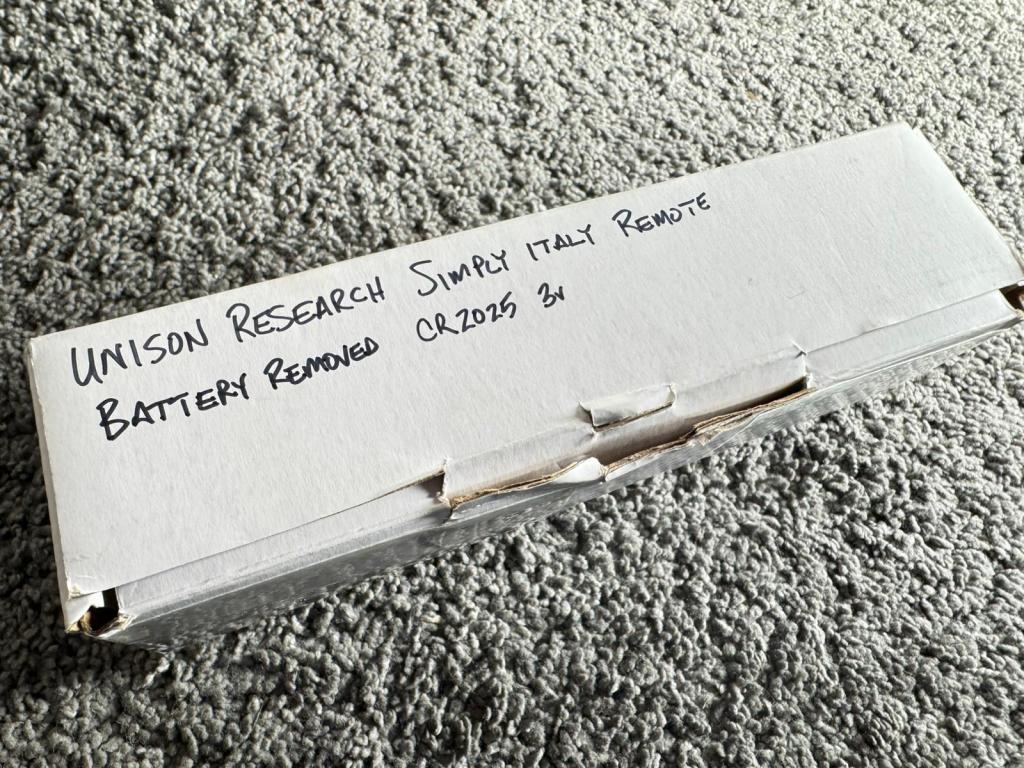 UNISON RESEARCH SIMPLY ITALY REMOTE
BATTERY REMOVED CR2025 3v